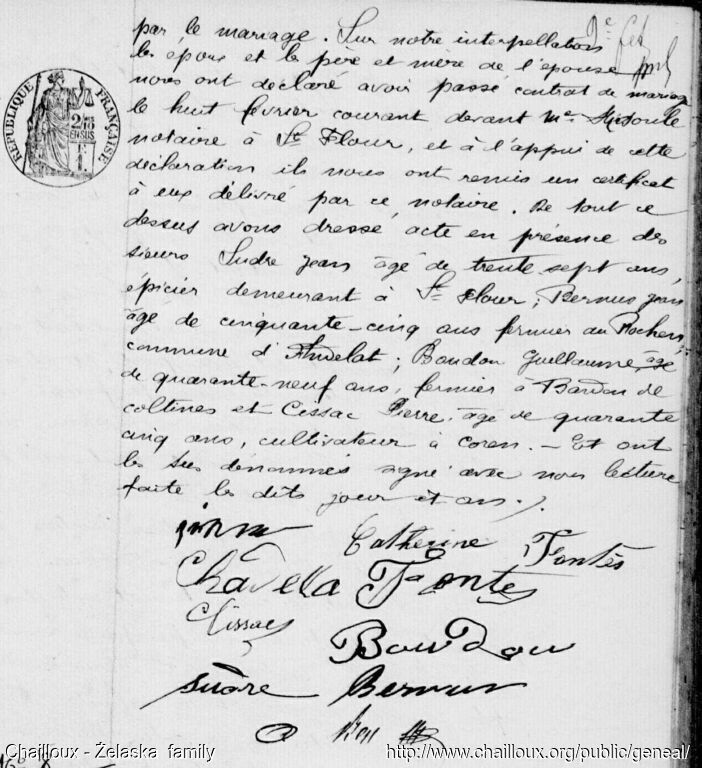 par le mariage. Sur notre interpellation
les époux et le père et mère de l'épouse
nous ont déclaré avoir passé contrat de mariage
le huit février courant devant Me
notaire à St Flour, et à l'appui de cette
déclaration ils nous ont remis un certificat
à eux délivré par ce notaire. De tout ce
dessus avons dressé acte en présence des
sieurs Sudre Jean âgé de trente sept ans,
épicier demeurant à St Flour; Bernus Jean
âgé de cinquante-cinq ans fermier au Rocher,
commune d'Andelat; Boudou Guillaume, âgé
de quarante-neuf ans, fermier à de
coltines et Cissac Pierre, âgé de quarante
cinq ans, cultivateur à Coren. - Et ont
les sus dénommés signé avec nous lecture
faite les dits jour et an ./.
RÉPUBLIQUE FRANÇAISE
Catherine Fontès
Chadella Fontès
Cissac
Boudou
Sudre Bernus
Chailloux - Żelaska family
http://www.chailloux.org/public/geneal/